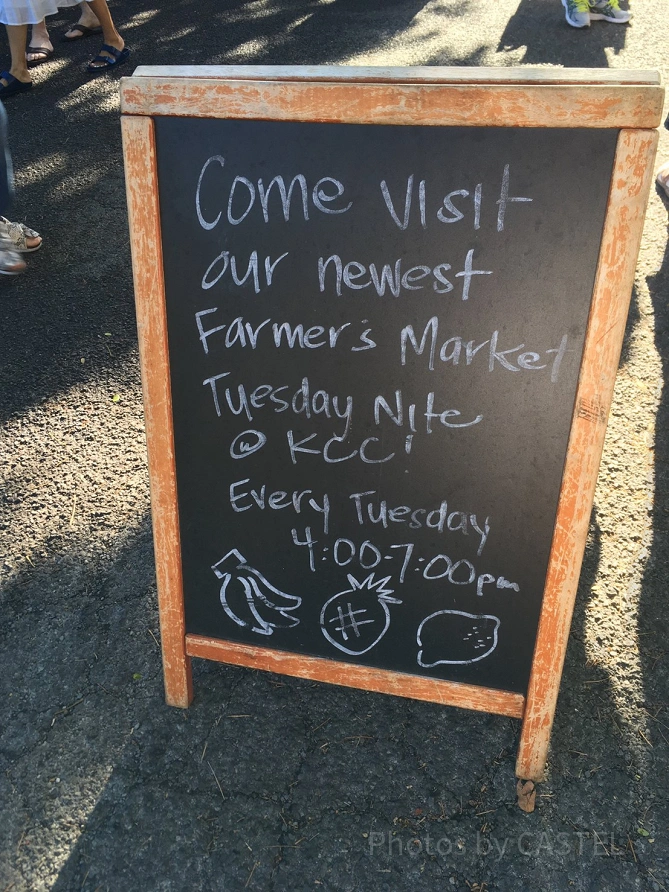 Come visit
our newest
Farmer's Market
Tuesday Nite
@ KCC!
Every Tuesday
4:00-7:00pm
Photos by CASTEL